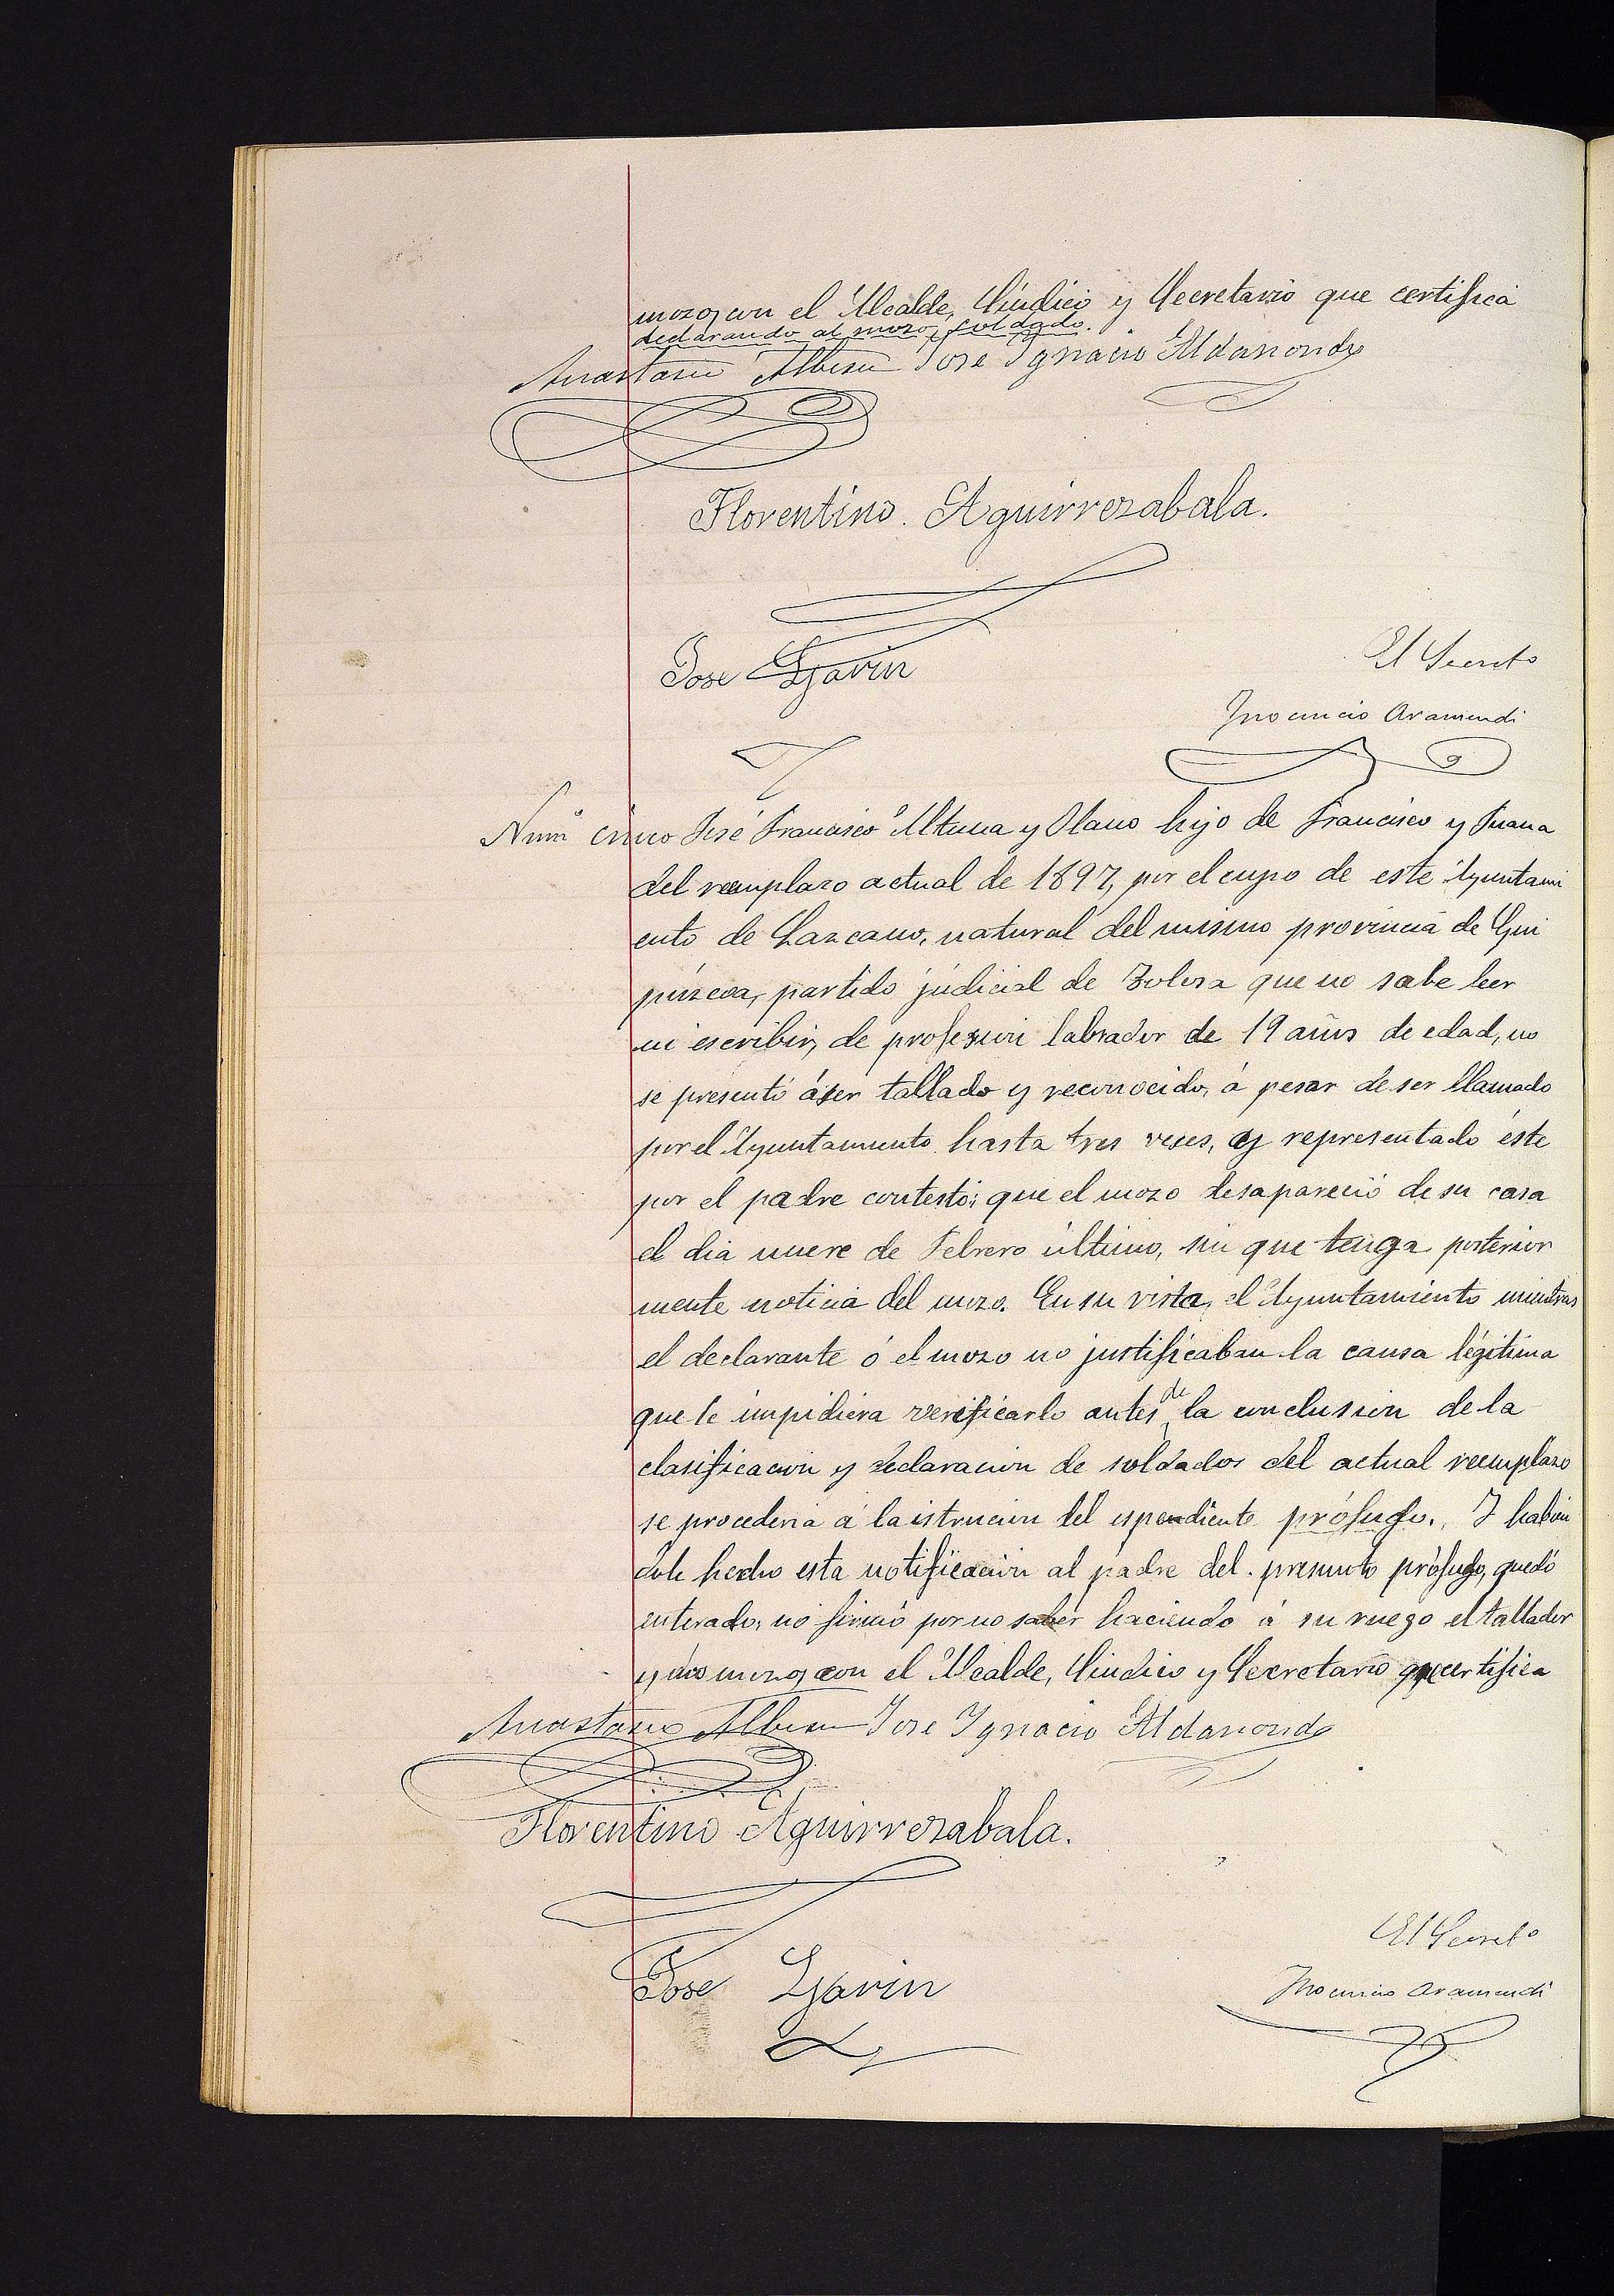 mozo, con el Alcalde, Síndico y Secretario que certifica
declarando al mozo, soldado.
Anastasio Albisu José Ygnacio Aldasondo
Florentino Aguirrezabala.
Jose Gavin
El Secreto
Ynocencio Aramendi
Numº cinco José Francisco Altuna y Olano hijo de Francisco y Juana
del reemplazo actual de 1897, por el cupo de este Ayuntami
ento de Lazcano, natural del mismo provincia de Gui
púzcoa, partido júdicial de Tolosa que no sabe leer
ni escribir, de profesion labrador de 19 años de edad, no
se presentó á ser tallado y reconocido, á pesar de ser llamado
por el Ayuntamiento hasta tres veces, y representado éste
por el padre contestó: que el mozo desapareció de su casa
el dia nueve de Febrero último, sin que tenga posterior
mente noticia del mozo. En su vista, el Ayuntamiento mientras
el declarante ó el mozo no justificaban la causa légitima
que le impidiera verificarlo antes de la conclusion de la
clasificacion y declaracion de soldados del actual reemplazo
se procederia á la istrucion del espendiente prófugo. Y habien
dole hecho esta notificacion al padre del presunto prófugo, quedó
enterado, no firmó por no saber haciendo á su ruego el tallador
y mozo, con el Alcalde, Síndico y Secretario que certifica
Anastasio Albisu José Ygnacio Aldasondo
Florentino Aguirrezabala.
Jose Gavin
El Secreto
Ynocencio Aramendi